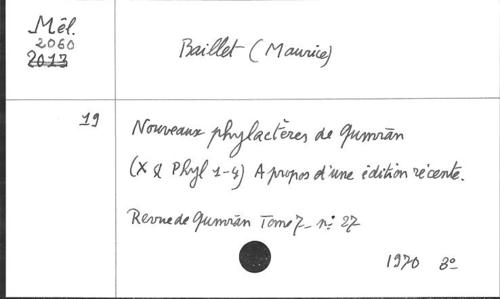 Mél.
2060
2013
Baillet (Maurice)
19
Nouveaux phylactères de Qumrān
(X Q Phyl 1-4) A propos d'une édition récente.
Revue de Qumrān Tome 7 - n: 27
1970 8º